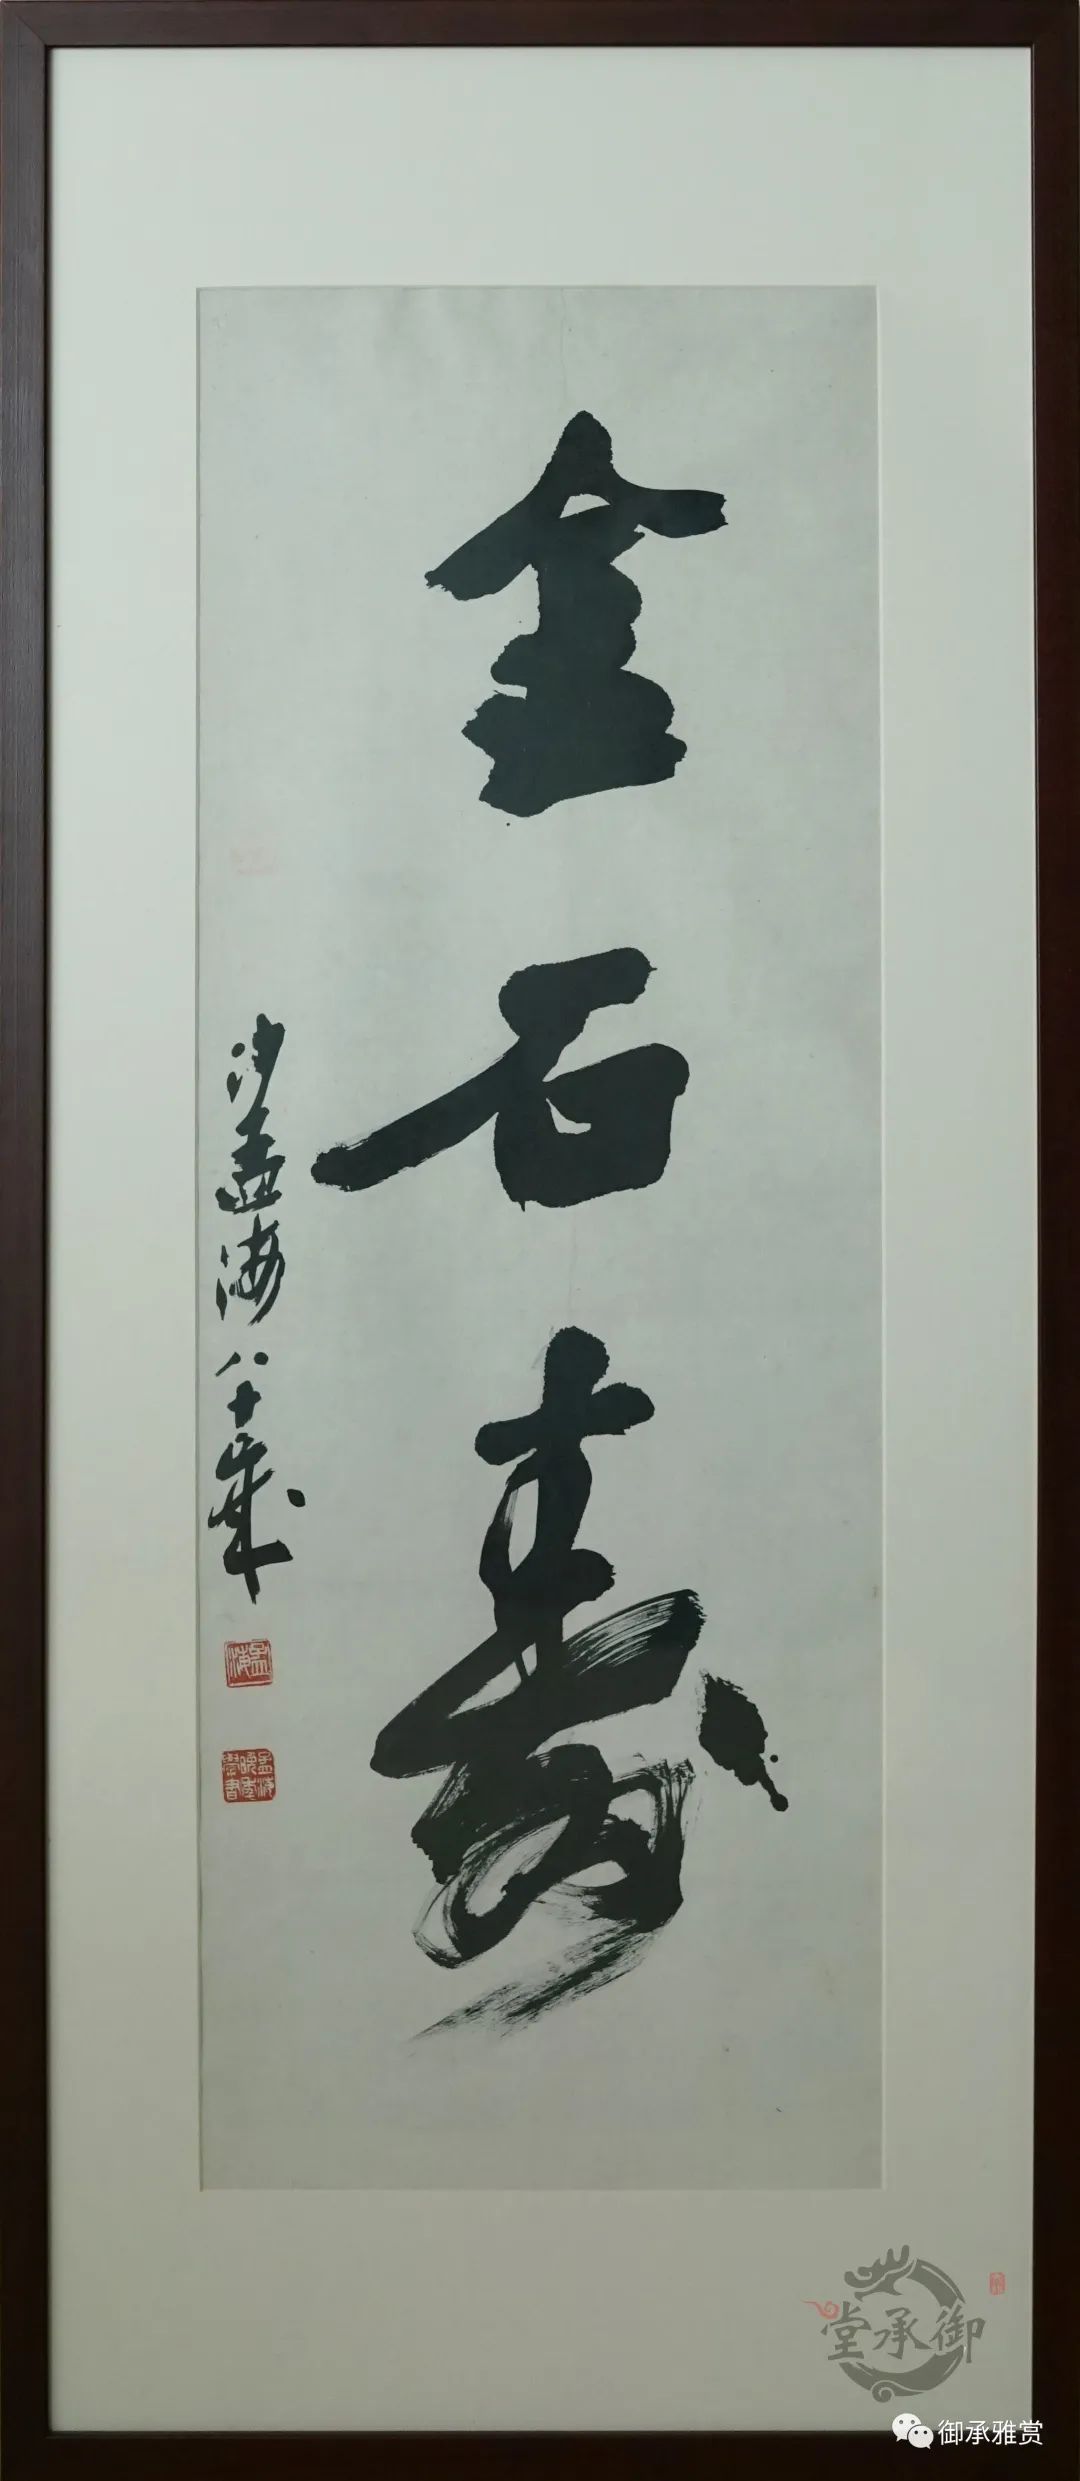 金石寿
沙孟海八十岁
孟海
孟海晚年学书
御承堂
御承雅赏